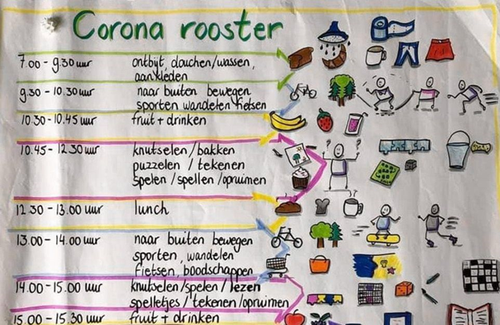 Corona rooster
7.00 - 9.30 uur ontbijt douchen/wassen,
aankleden
9.30 - 10.30 uur naar buiten bewegen
sporten wandelen fietsen
10.30 - 10.45 uur fruit + drinken
10.45 - 12.30 uur knutselen/bakken
puzzelen / tekenen
spelen /spellen /opruimen
12.30 - 13.00 uur lunch
13.00 - 14.00 uur naar buiten bewegen
sporten, wandelen
fietsen, boodschappen
14.00 - 15.00 uur knutselen/spelen/lezen
spelletjes/tekenen/opruimen
15.00 - 15.30 uur fruit + drinken